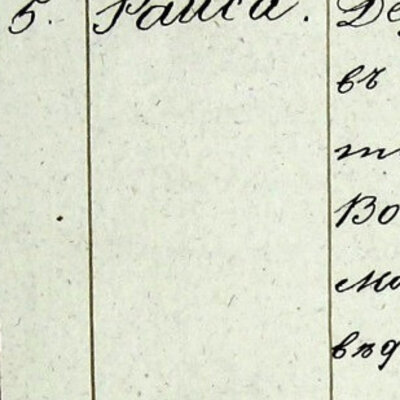 5. Раиса. Де
въ
т
Во
ма
вѣд